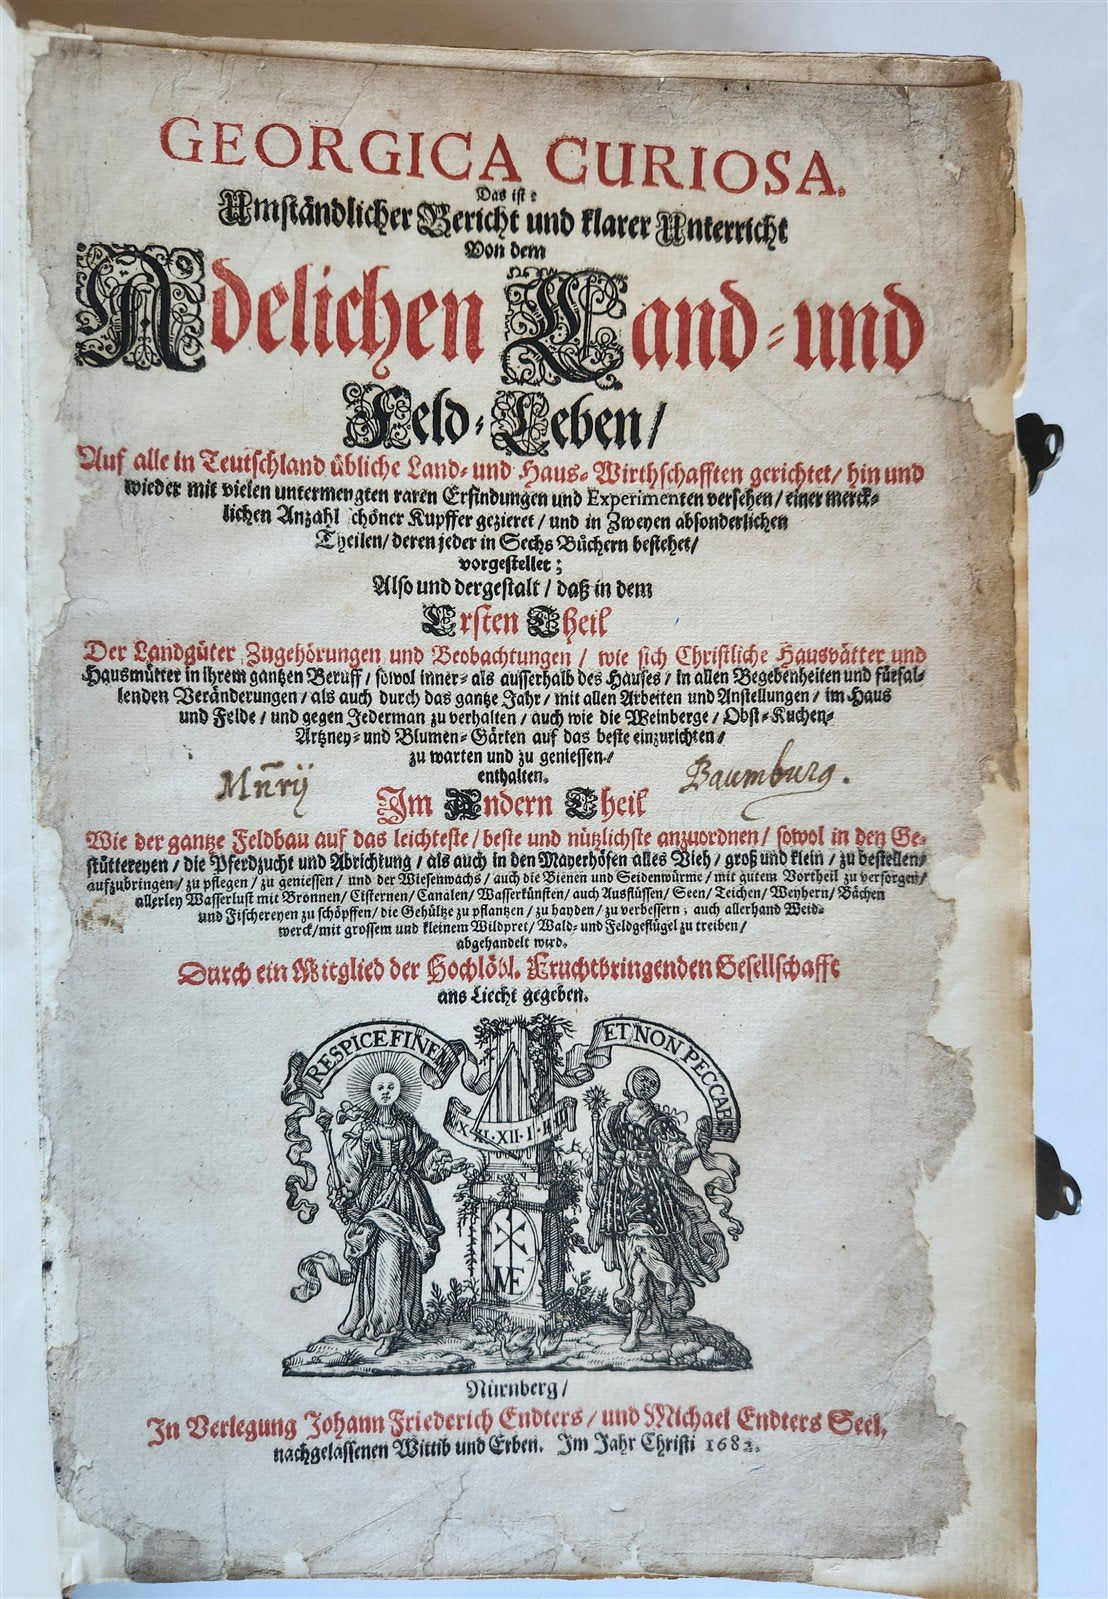 GEORGICA CURIOSA.
Das ist:
Umständlicher Bericht und klarer Unterricht
Von dem
Adelichen Land- und
Feld-Leben/
Auf alle in Teutschland übliche Land- und Haus-Wirthschafften gerichtet/ hin und
wieder mit vielen untermengten raren Erfindungen und Experimenten versehen/ einer merck-
lichen Anzahl schöner Kupffer gezieret/ und in Zweyen absonderlichen
Theilen/ deren jeder in Sechs Büchern bestehet/
vorgestellet;
Also und dergestalt/ daß in dem
Ersten Theil
Der Landgüter Zugehörungen und Beobachtungen/ wie sich Christliche Hausvätter und
Hausmütter in ihrem gantzen Beruff/ sowol inner- als ausserhalb des Hauses/ in allen Begebenheiten und fürfal-
lenden Veränderungen/ als auch durch das gantze Jahr/ mit allen Arbeiten und Anstellungen/ im Haus
und Felde/ und gegen Jederman zu verhalten/ auch wie die Weinberge/ Obst-Kuchen-
Artzney- und Blumen-Gärten auf das beste einzurichten/
zu warten und zu geniessen/
enthalten.
Mn̄rÿ Baumburg.
Im Andern Theil
Wie der gantze Feldbau auf das leichteste/ beste und nützlichste anzuordnen/ sowol in den Ge-
stüttereyen/ die Pferdzucht und Abrichtung/ als auch in den Mayerhöfen alles Vieh/ groß und klein/ zu bestellen/
aufzubringen/ zu pflegen/ zu geniessen/ und der Wiesenwachs/ auch die Bienen und Seidenwürme/ mit gutem Vortheil zu versorgen/
allerley Wasserlust mit Bronnen/ Cisternen/ Canalen/ Wasserkünsten/ auch Ausflüssen/ Seen/ Teichen/ Weyhern/ Bächen
und Fischereyen zu schöpffen/ die Gehültze zu pflantzen/ zu hayden/ zu verbessern; auch allerhand Weid-
werck/ mit grossem und kleinem Wildpret/ Wald- und Feldgeflügel zu treiben/
abgehandelt wird.
Durch ein Mitglied der Hochlöbl. Fruchtbringenden Gesellschafft
ans Liecht gegeben.
RESPICE FINEM
ET NON PECCABIS
X·XI·XII·I·II·III
ME
Nürnberg/
In Verlegung Johann Friederich Endters/ und Michael Endters Seel.
nachgelassenen Wittib und Erben. Im Jahr Christi 1682.